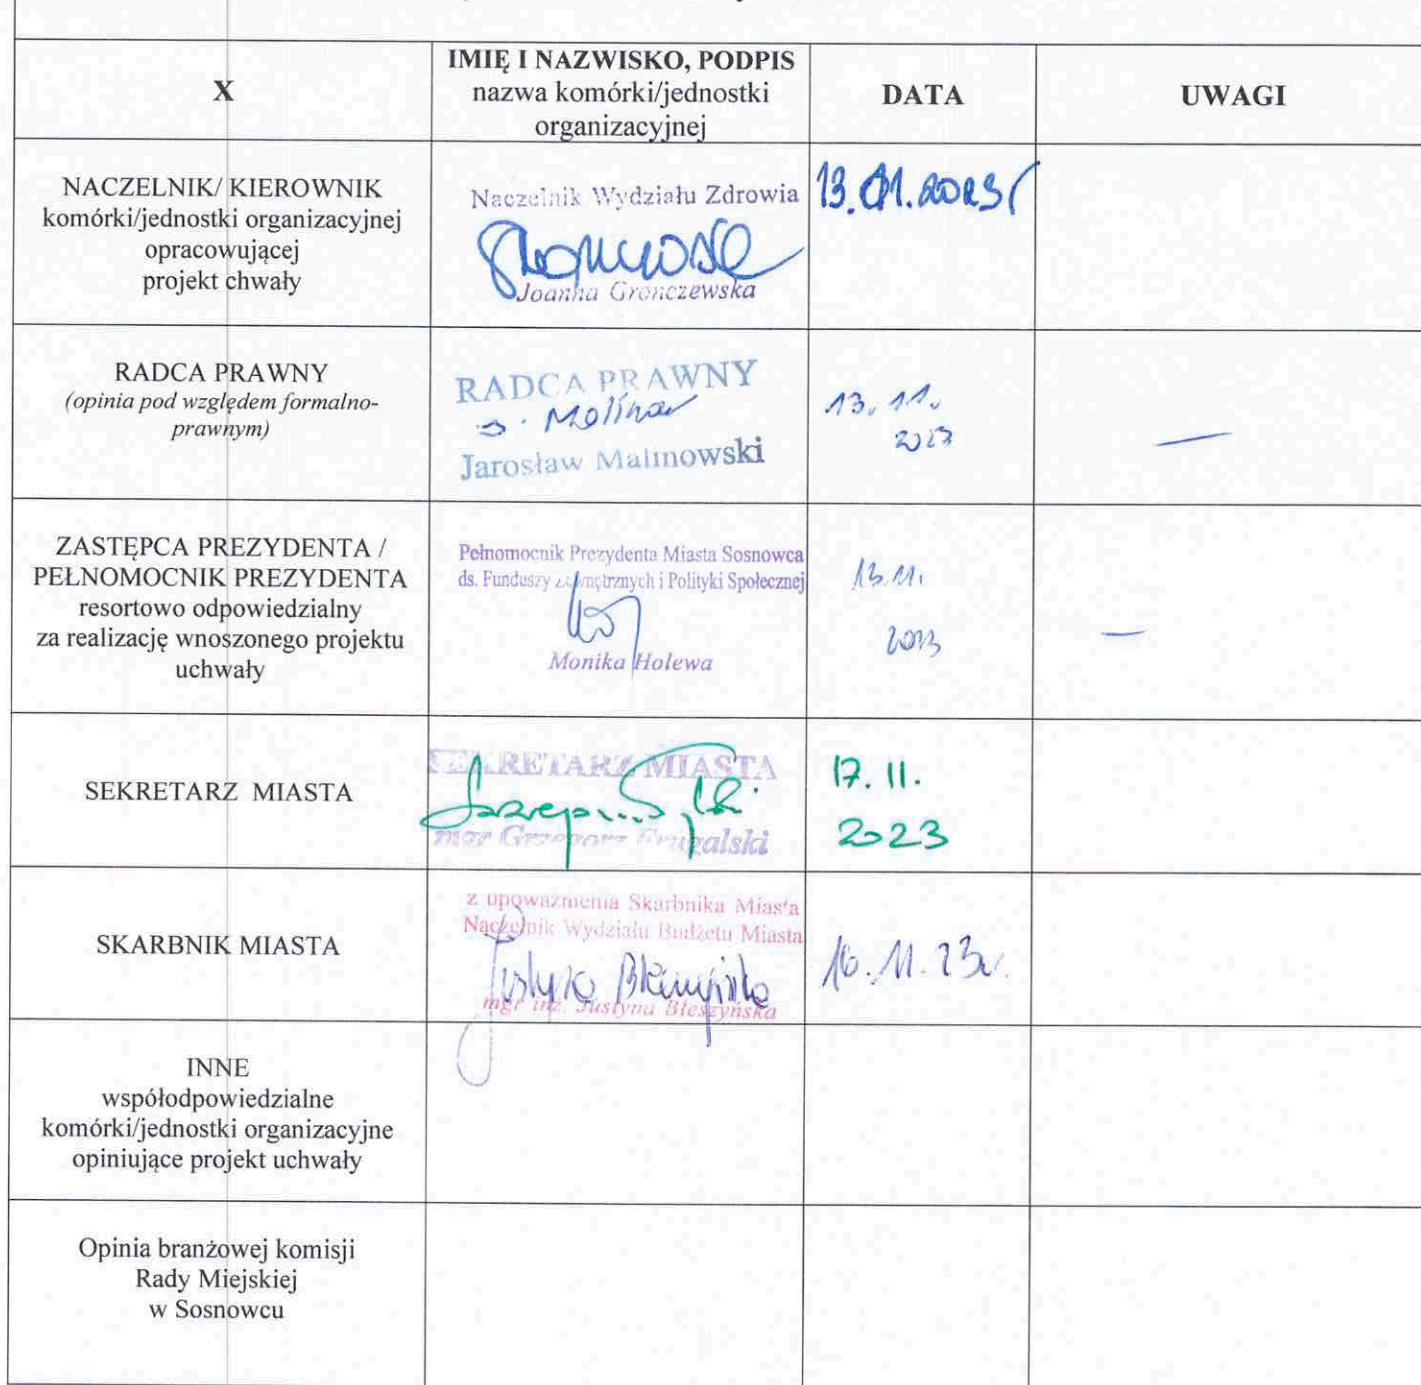 X
IMIĘ I NAZWISKO, PODPIS
nazwa komórki/jednostki
organizacyjnej
DATA
UWAGI
NACZELNIK/ KIEROWNIK
komórki/jednostki organizacyjnej
opracowującej
projekt chwały
Naczelnik Wydziału Zdrowia
Joanna Gronczewska
13.11.2023r
RADCA PRAWNY
(opinia pod względem formalno-
prawnym)
RADCA PRAWNY
Jarosław Malinowski
13.11.
2023
—
ZASTĘPCA PREZYDENTA /
PEŁNOMOCNIK PREZYDENTA
resortowo odpowiedzialny
za realizację wnoszonego projektu
uchwały
Pełnomocnik Prezydenta Miasta Sosnowca
ds. Funduszy Zewnętrznych i Polityki Społecznej
Monika Holewa
13.11.
2023
—
SEKRETARZ MIASTA
SEKRETARZ MIASTA
mgr Grzegorz Frugalski
17.11.
2023
SKARBNIK MIASTA
z upoważnienia Skarbnika Miasta
Naczelnik Wydziału Budżetu Miasta
Justyna Błeszyńska
mgr inż. Justyna Błeszyńska
16.11.23r.
INNE
współodpowiedzialne
komórki/jednostki organizacyjne
opiniujące projekt uchwały
Opinia branżowej komisji
Rady Miejskiej
w Sosnowcu